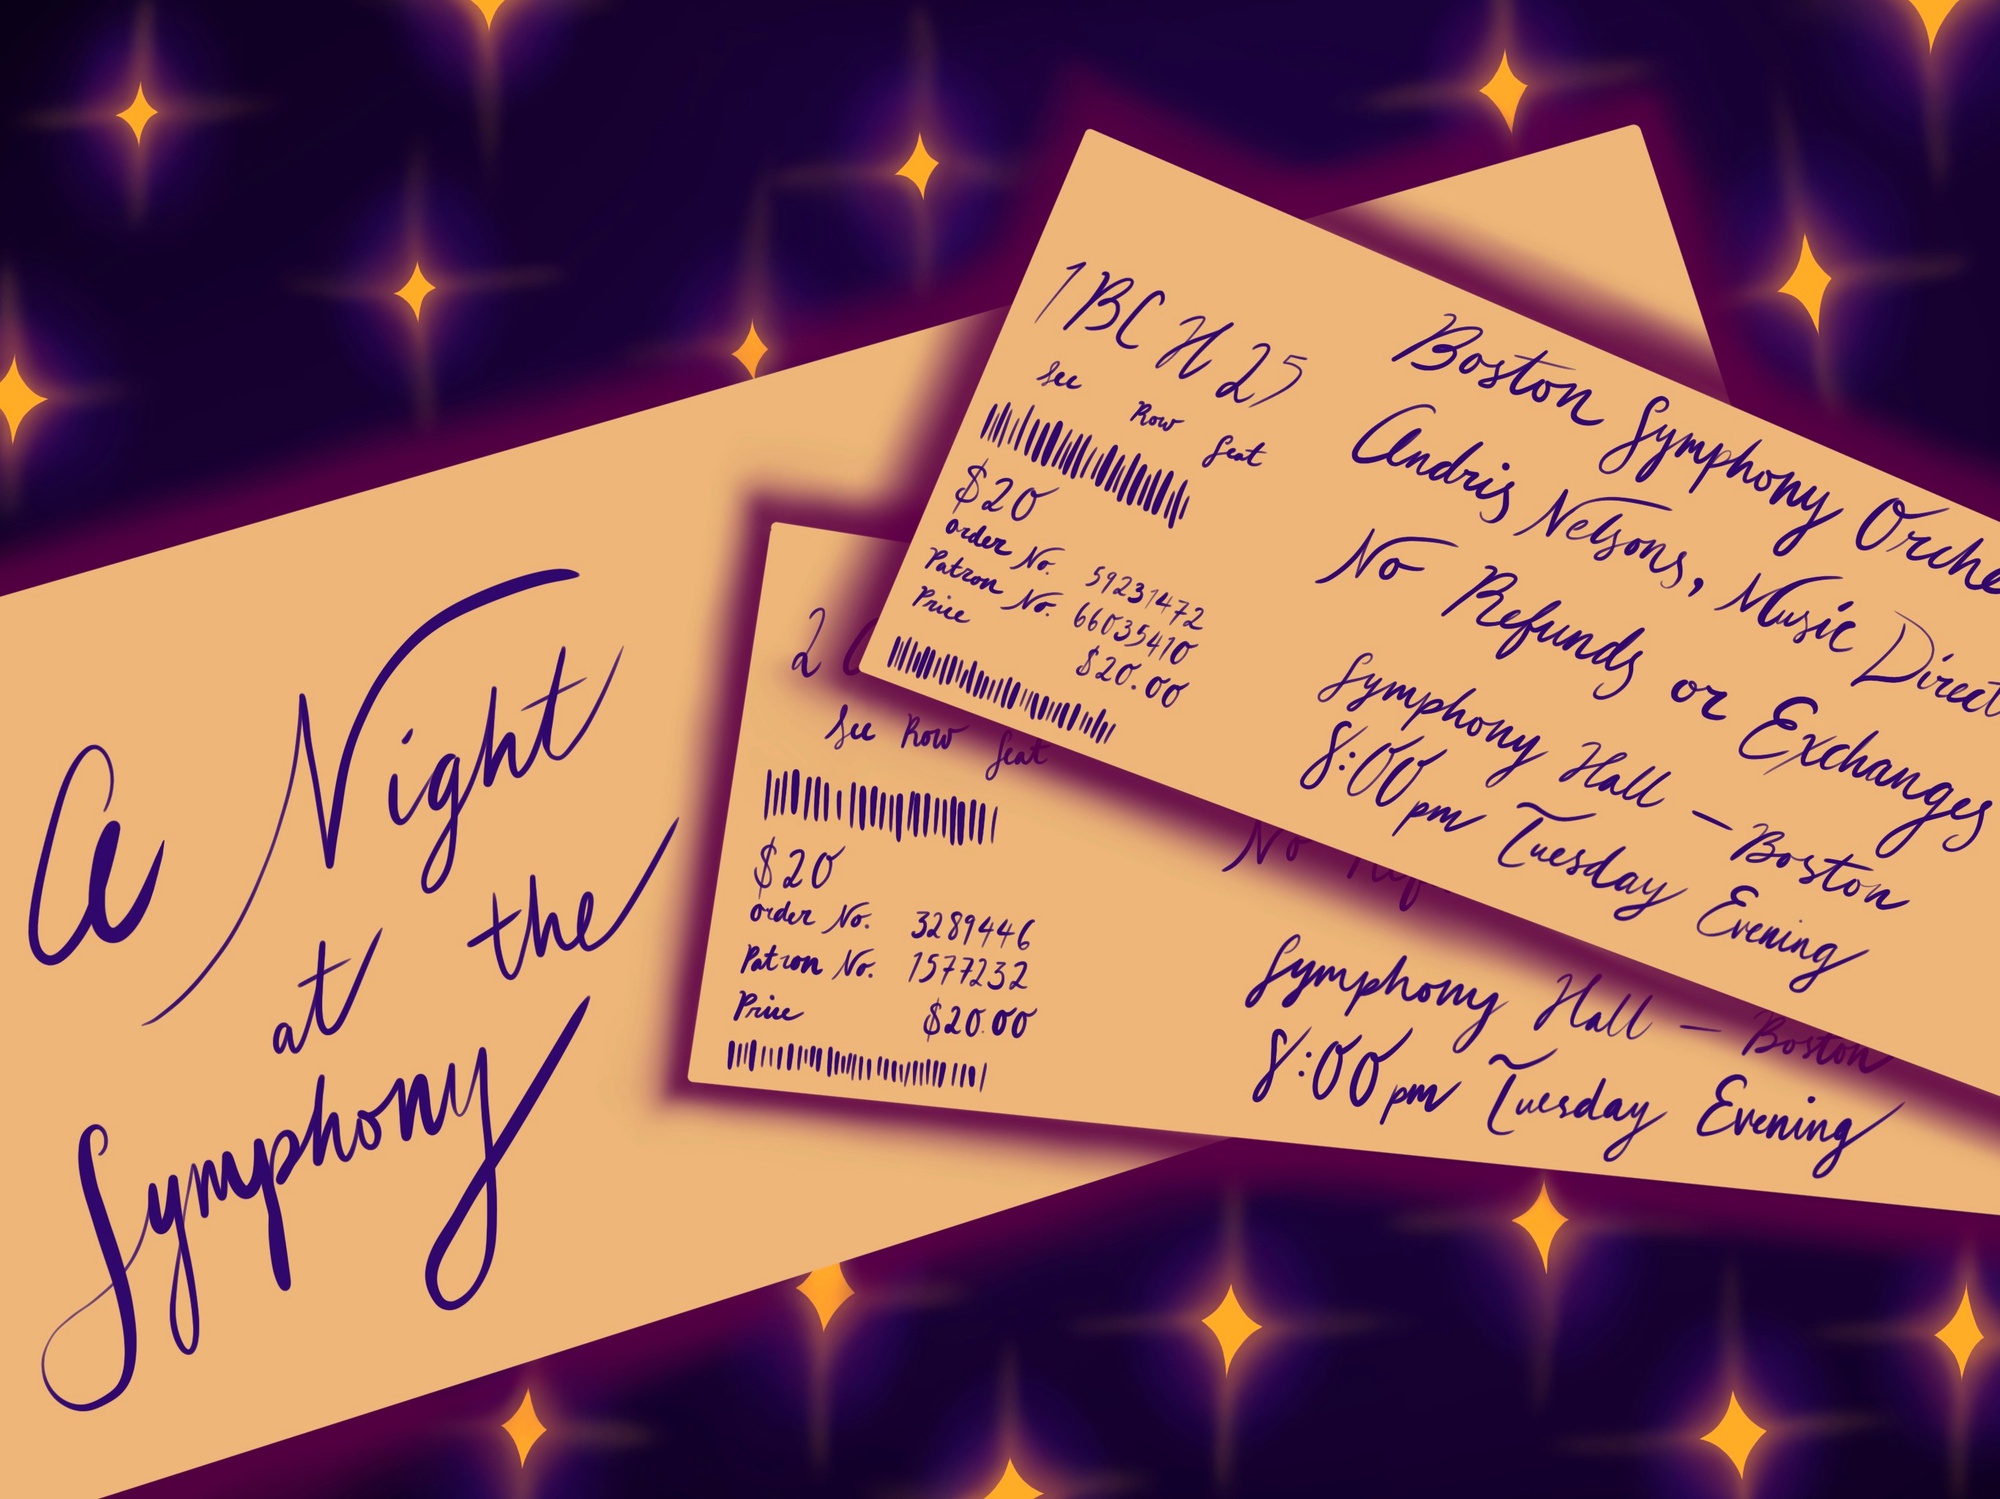 A Night
at the
Symphony
1BC H 25
Sec Row Seat
$20
Order No. 59231472
Patron No. 66035410
Price $20.00
Boston Symphony Orche
Andris Nelsons, Music Direct
No Refunds or Exchanges
Symphony Hall – Boston
8:00pm Tuesday Evening
2
Sec Row Seat
$20
Order No. 3289446
Patron No. 1577232
Price $20.00
No Ref
Symphony Hall – Boston
8:00pm Tuesday Evening